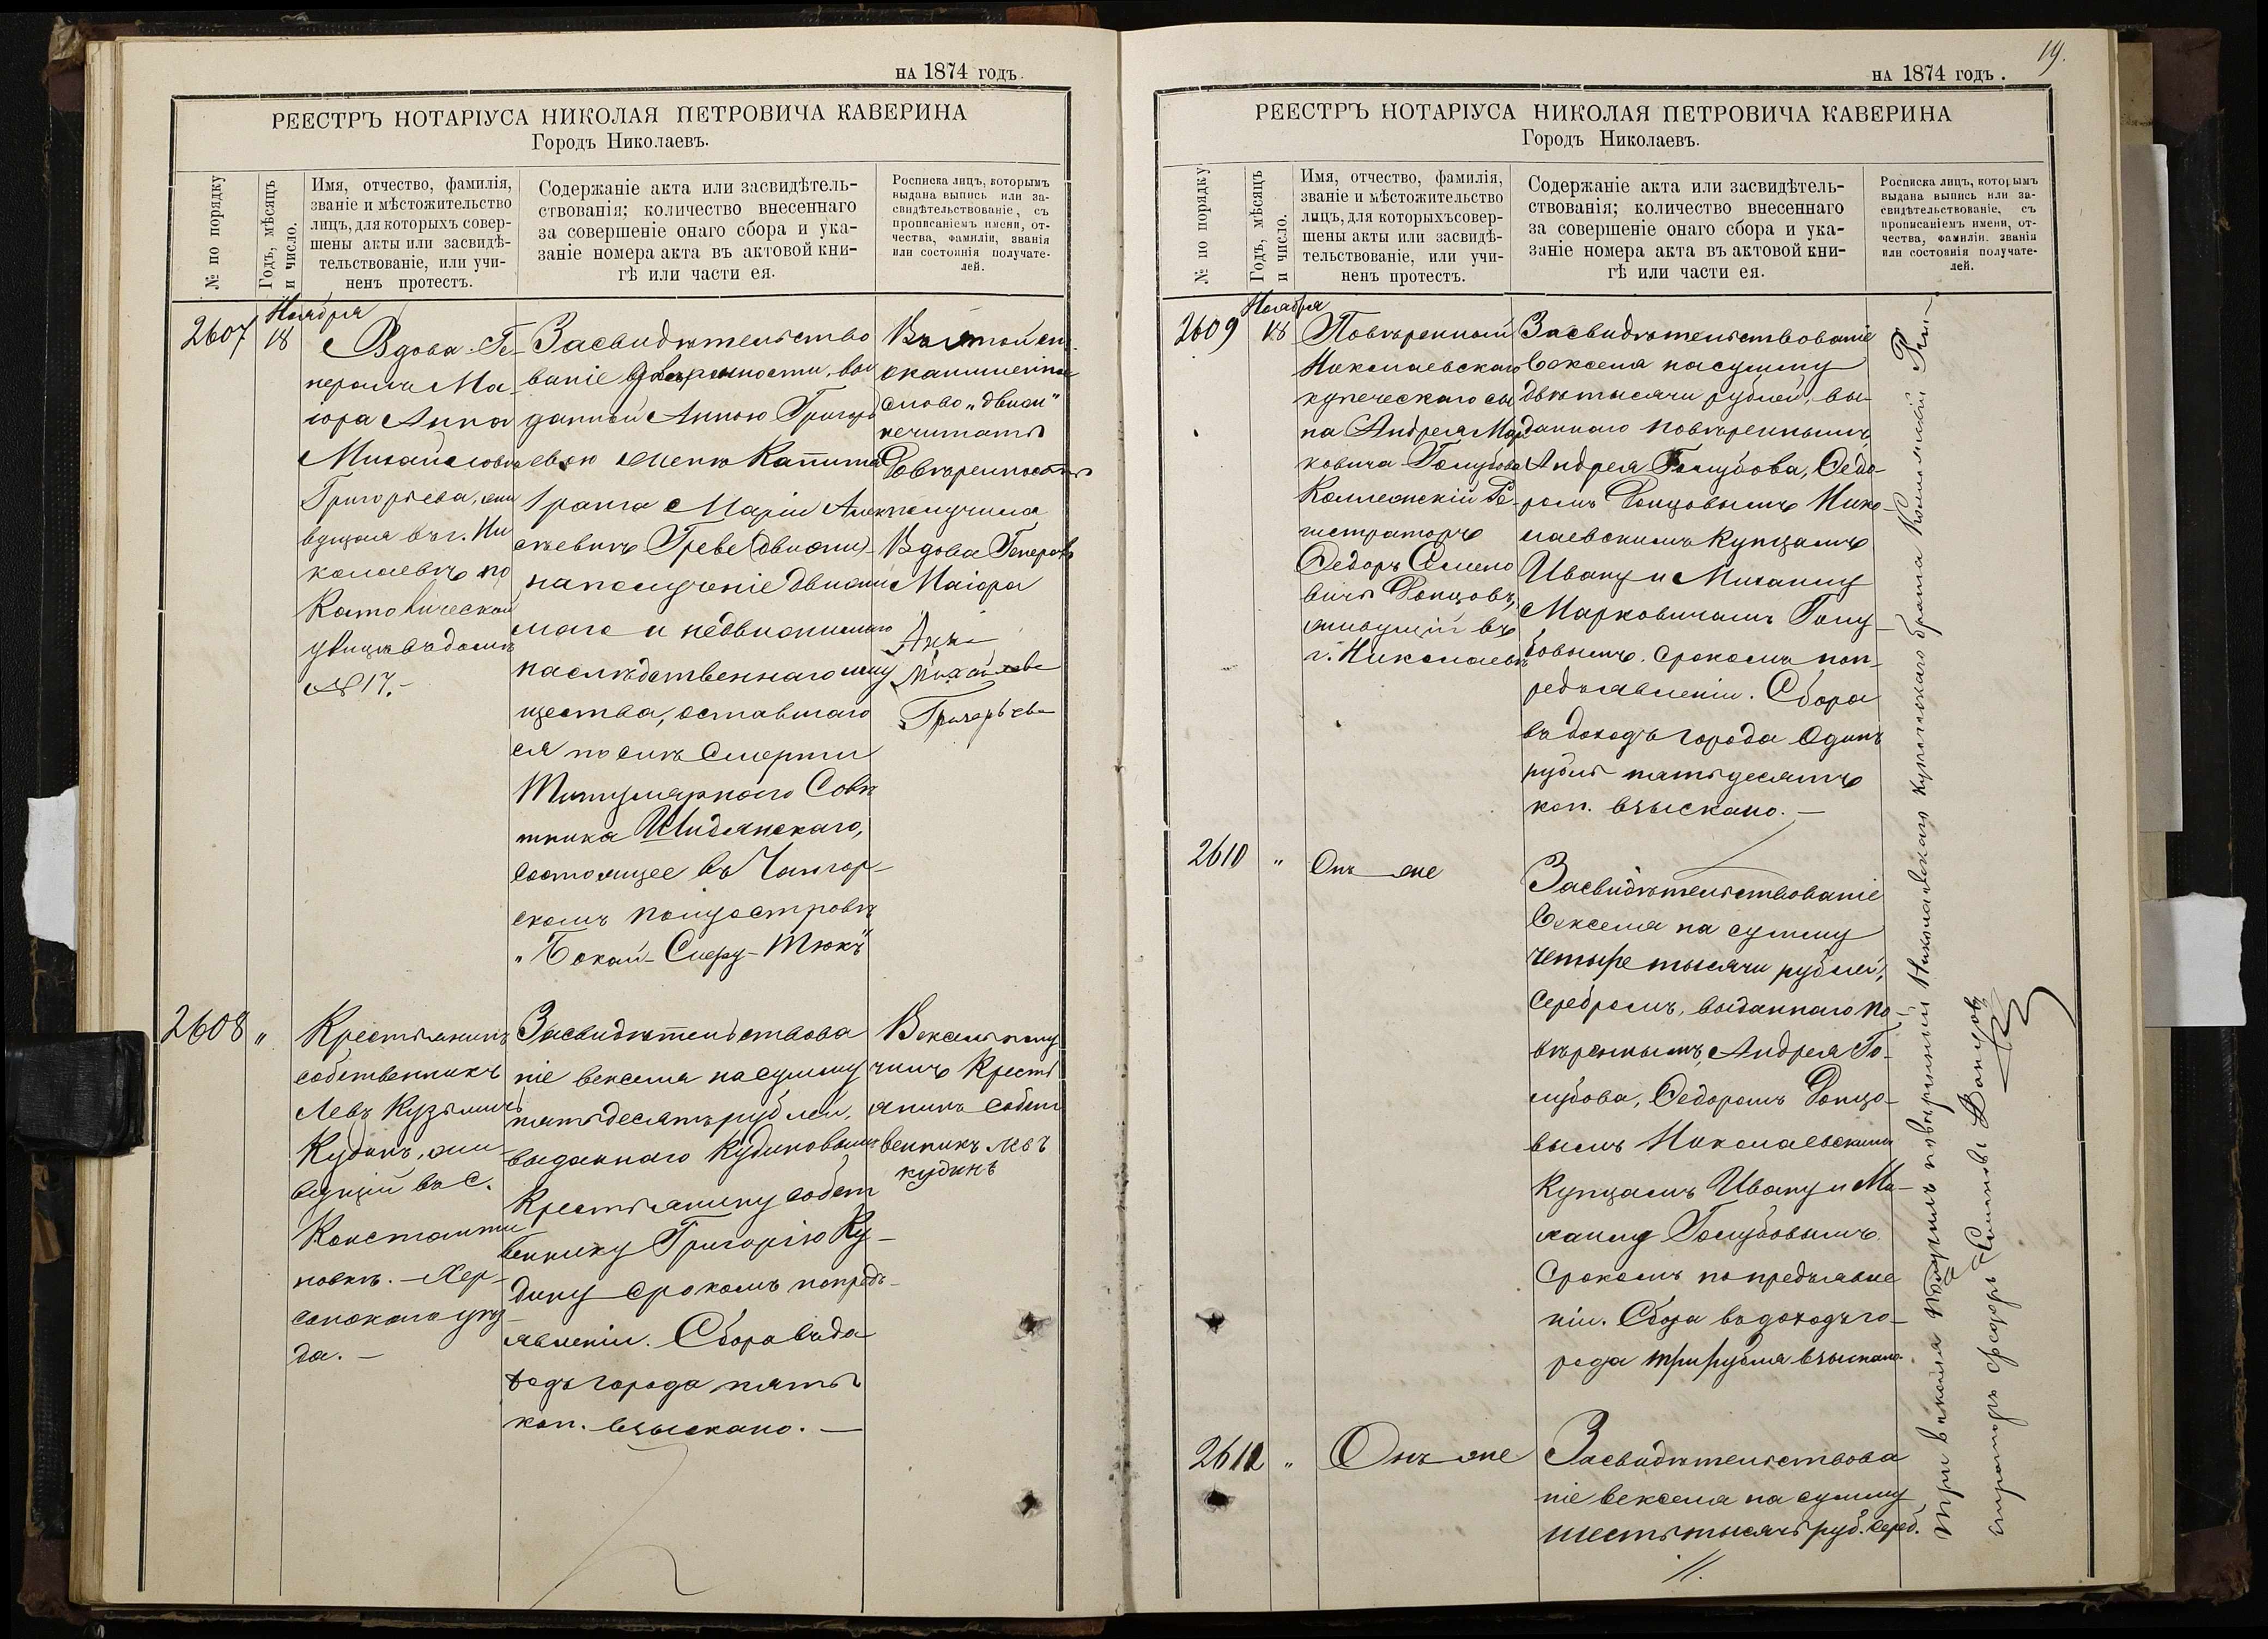 на 1874 годъ.
РЕЕСТРЪ НОТАРІУСА НИКОЛАЯ ПЕТРОВИЧА КАВЕРИНА
Городъ Николаевъ.
№ по порядку
Годъ, мѣсяцъ
и число.
Имя, отчество, фамилія,
званіе и мѣстожительство
лицъ, для которыхъ совер-
шены акты или засвидѣ-
тельствованіе, или учи-
ненъ протестъ.
Содержаніе акта или засвидѣтель-
ствованія; количество внесеннаго
за совершеніе онаго сбора и ука-
заніе номера акта въ актовой кни-
гѣ или части ея.
Росписка лицъ, которымъ
выдана выпись или за-
свидѣтельствованіе, съ
прописаніемъ имени, от-
чества, фамиліи, званія
или состоянія получате-
лей.
2607
Ноября
18
Вдова Ге-
нералъ Ма-
іора Анна
Михайловна
Григорьева, жи
вущая въ г. Ни
колаевѣ по
Католической
улицѣ въ домѣ
№ 17.-
Засвидѣтельство
ваніе довѣренности, вы
данной Анною Григорь
евою женѣ Капитана
1 ранга Маріи Алек
сѣевнѣ Греве (движи)
на полученіе движи
маго и недвижимаго
наслѣдственнаго иму
щества, оставшаго
ся послѣ смерти
Титулярнаго Совѣ
тника Шидянскаго,
состоящее въ Чангор-
скомъ полуостровѣ
слово „движи"
нечитать
Довѣренность
получила
Вдова Генералъ
Маіора
Анна
Михайлова
Григорьева
2608 "
Крестьянинъ
собственникъ
Левъ Кузьмичъ
Кудинъ, жи-
вущій въ С.
Константи
новкѣ. - Хер-
сонскаго уѣз-
да. -
Засвидѣтельствова
ніе векселя на сумму
пятьдесятъ рублей,
выданнаго Кудиновымъ
Крестьянину собст
веннику Григорію Ку-
дину срокомъ по предъ-
явленіи. Сбора въ до
ходъ города пять
коп. взыскано. -
Вексель полу
чилъ Кресть
янинъ собст
венникъ Левъ
кудинъ
19.
на 1874 годъ.
РЕЕСТРЪ НОТАРІУСА НИКОЛАЯ ПЕТРОВИЧА КАВЕРИНА
Городъ Николаевъ.
№ по порядку
Годъ, мѣсяцъ
и число.
Имя, отчество, фамилія,
званіе и мѣстожительство
лицъ, для которыхъ совер-
шены акты или засвидѣ-
тельствованіе, или учи-
ненъ протестъ.
Содержаніе акта или засвидѣтель-
ствованія; количество внесеннаго
за совершеніе онаго сбора и ука-
заніе номера акта въ актовой кни-
гѣ или части ея.
Росписка лицъ, которымъ
выдана выпись или за-
свидѣтельствованіе, съ
прописаніемъ имени, от-
чества, фамиліи, званія
или состоянія получате-
лей.
2609
Ноября
18
Повѣренный
Николаевскаго
купеческаго сы
на Андрея Мар
ковича Голубова
Коллежскій Ре-
гистраторъ
Федоръ Семено
вичъ Донцовъ,
живущій въ
г. Николаевѣ
Засвидѣтельствованіе
векселя на сумму
двѣ тысячи рублей, вы-
даннаго повѣреннымъ
Андрея Голубова, Федо-
ромъ Донцовымъ Нико-
лаевскимъ купцамъ
Ивану и Михаилу
Марковичамъ Голу-
бовымъ. срокомъ по п-
редъявленіи. Сбора
въ доходъ города Одинъ
рубль пятьдесятъ
коп. взыскано. -
2610 "
Онъ же
Засвидѣтельствованіе
векселя на сумму
четыре тысячи рублей,
серебромъ, выданнаго по-
вѣреннымъ, Андрея Го-
лубова, Федоромъ Донцо-
вымъ Николаевскимъ
купцамъ Ивану и Ми-
хаилу Голубовымъ.
Срокомъ по предъявле
ніи. Сбора въ доходъ го-
рода три рубля взыскано.
2611 "
Онъ же
Засвидѣтельствова
ніе векселя на сумму
шесть тысячъ руб. сереб.
Три векселя получилъ повѣренный Николаевскаго купеческаго брата Коллежскій Реги-
страторъ Федоръ Семеновъ Донцовъ